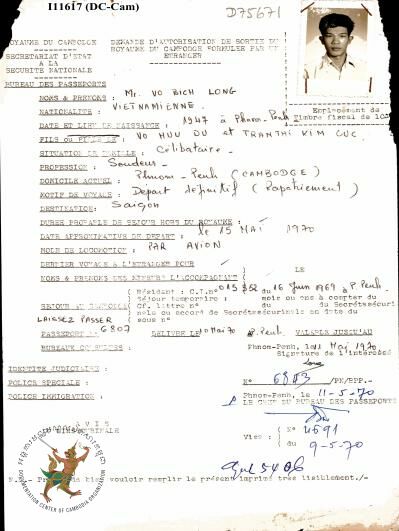 I11617 (DC-Cam)
D75671
ROYAUME DU CAMBODGE
DEMANDE D'AUTORISATION DE SORTIE DU
ROYAUME DU CAMBODGE FORMULEE PAR UN
ETRANGER
SECRETARIAT D'ETAT
A LA
SECURITE NATIONALE
BUREAU DES PASSEPORTS
NOMS & PRENOMS : Mr. VO BICH LONG
NATIONALITE : VIETNAMIENNE.
DATE ET LIEU DE NAISSANCE : 1947 à Phnom-Penh
Emplacement du
Timbre fiscal de
FILS ou : VO HUU DU et TRANTHI KIM CUC
SITUATION DE FAMILLE : Célibataire
PROFESSION : Soudeur
DOMICILE ACTUEL : Phnom-Penh (CAMBODGE)
MOTIF DE VOYAGE : Départ définitif (Rapatriement)
DESTINATION: Saigon
DUREE PROBABLE DE SEJOUR HORS DU ROYAUME :
DATE APPROXIMATIVE DE DEPART : le 15 MAI 1970
MODE DE LOCOMOTION : PAR AVION
DERNIER VOYAGE A L'ETRANGER POUR LE
NOMS & PRENOMS DES MINEURS L'ACCOMPAGNANT
SEJOUR AU CAMBODGE
( Résident : C.I.N° 015852 du 16 Juin 1969 à P. Penh
( Séjour temporaire : mois ou ans à compter du
( Cf. lettre n° du Secrétsécuri
LAISSEZ PASSER
PASSEPORT N° 6807 DELIVRE LE 10 Mai 70 P. Penh VALABLE JUSQU'AU
BUREAUX CONSULTES :
Phnom-Penh, le 11 Mai 1970
Signature de l'intéressé
IDENTITE JUDICIAIRE :
N° 6803 /PN/BPP.-
POLICE SPECIALE :
Phnom-Penh, le 11-5-70
POLICE IMMIGRATION :
LE CHEF DU BUREAU DES PASSEPORTS
AVIS
Visa : ( N° 4691
( du 9-5-70
5406
DOCUMENTATION CENTER OF CAMBODIA ORGANIZATION
N.B.- Prière de bien vouloir remplir le présent imprimé très lisiblement./-